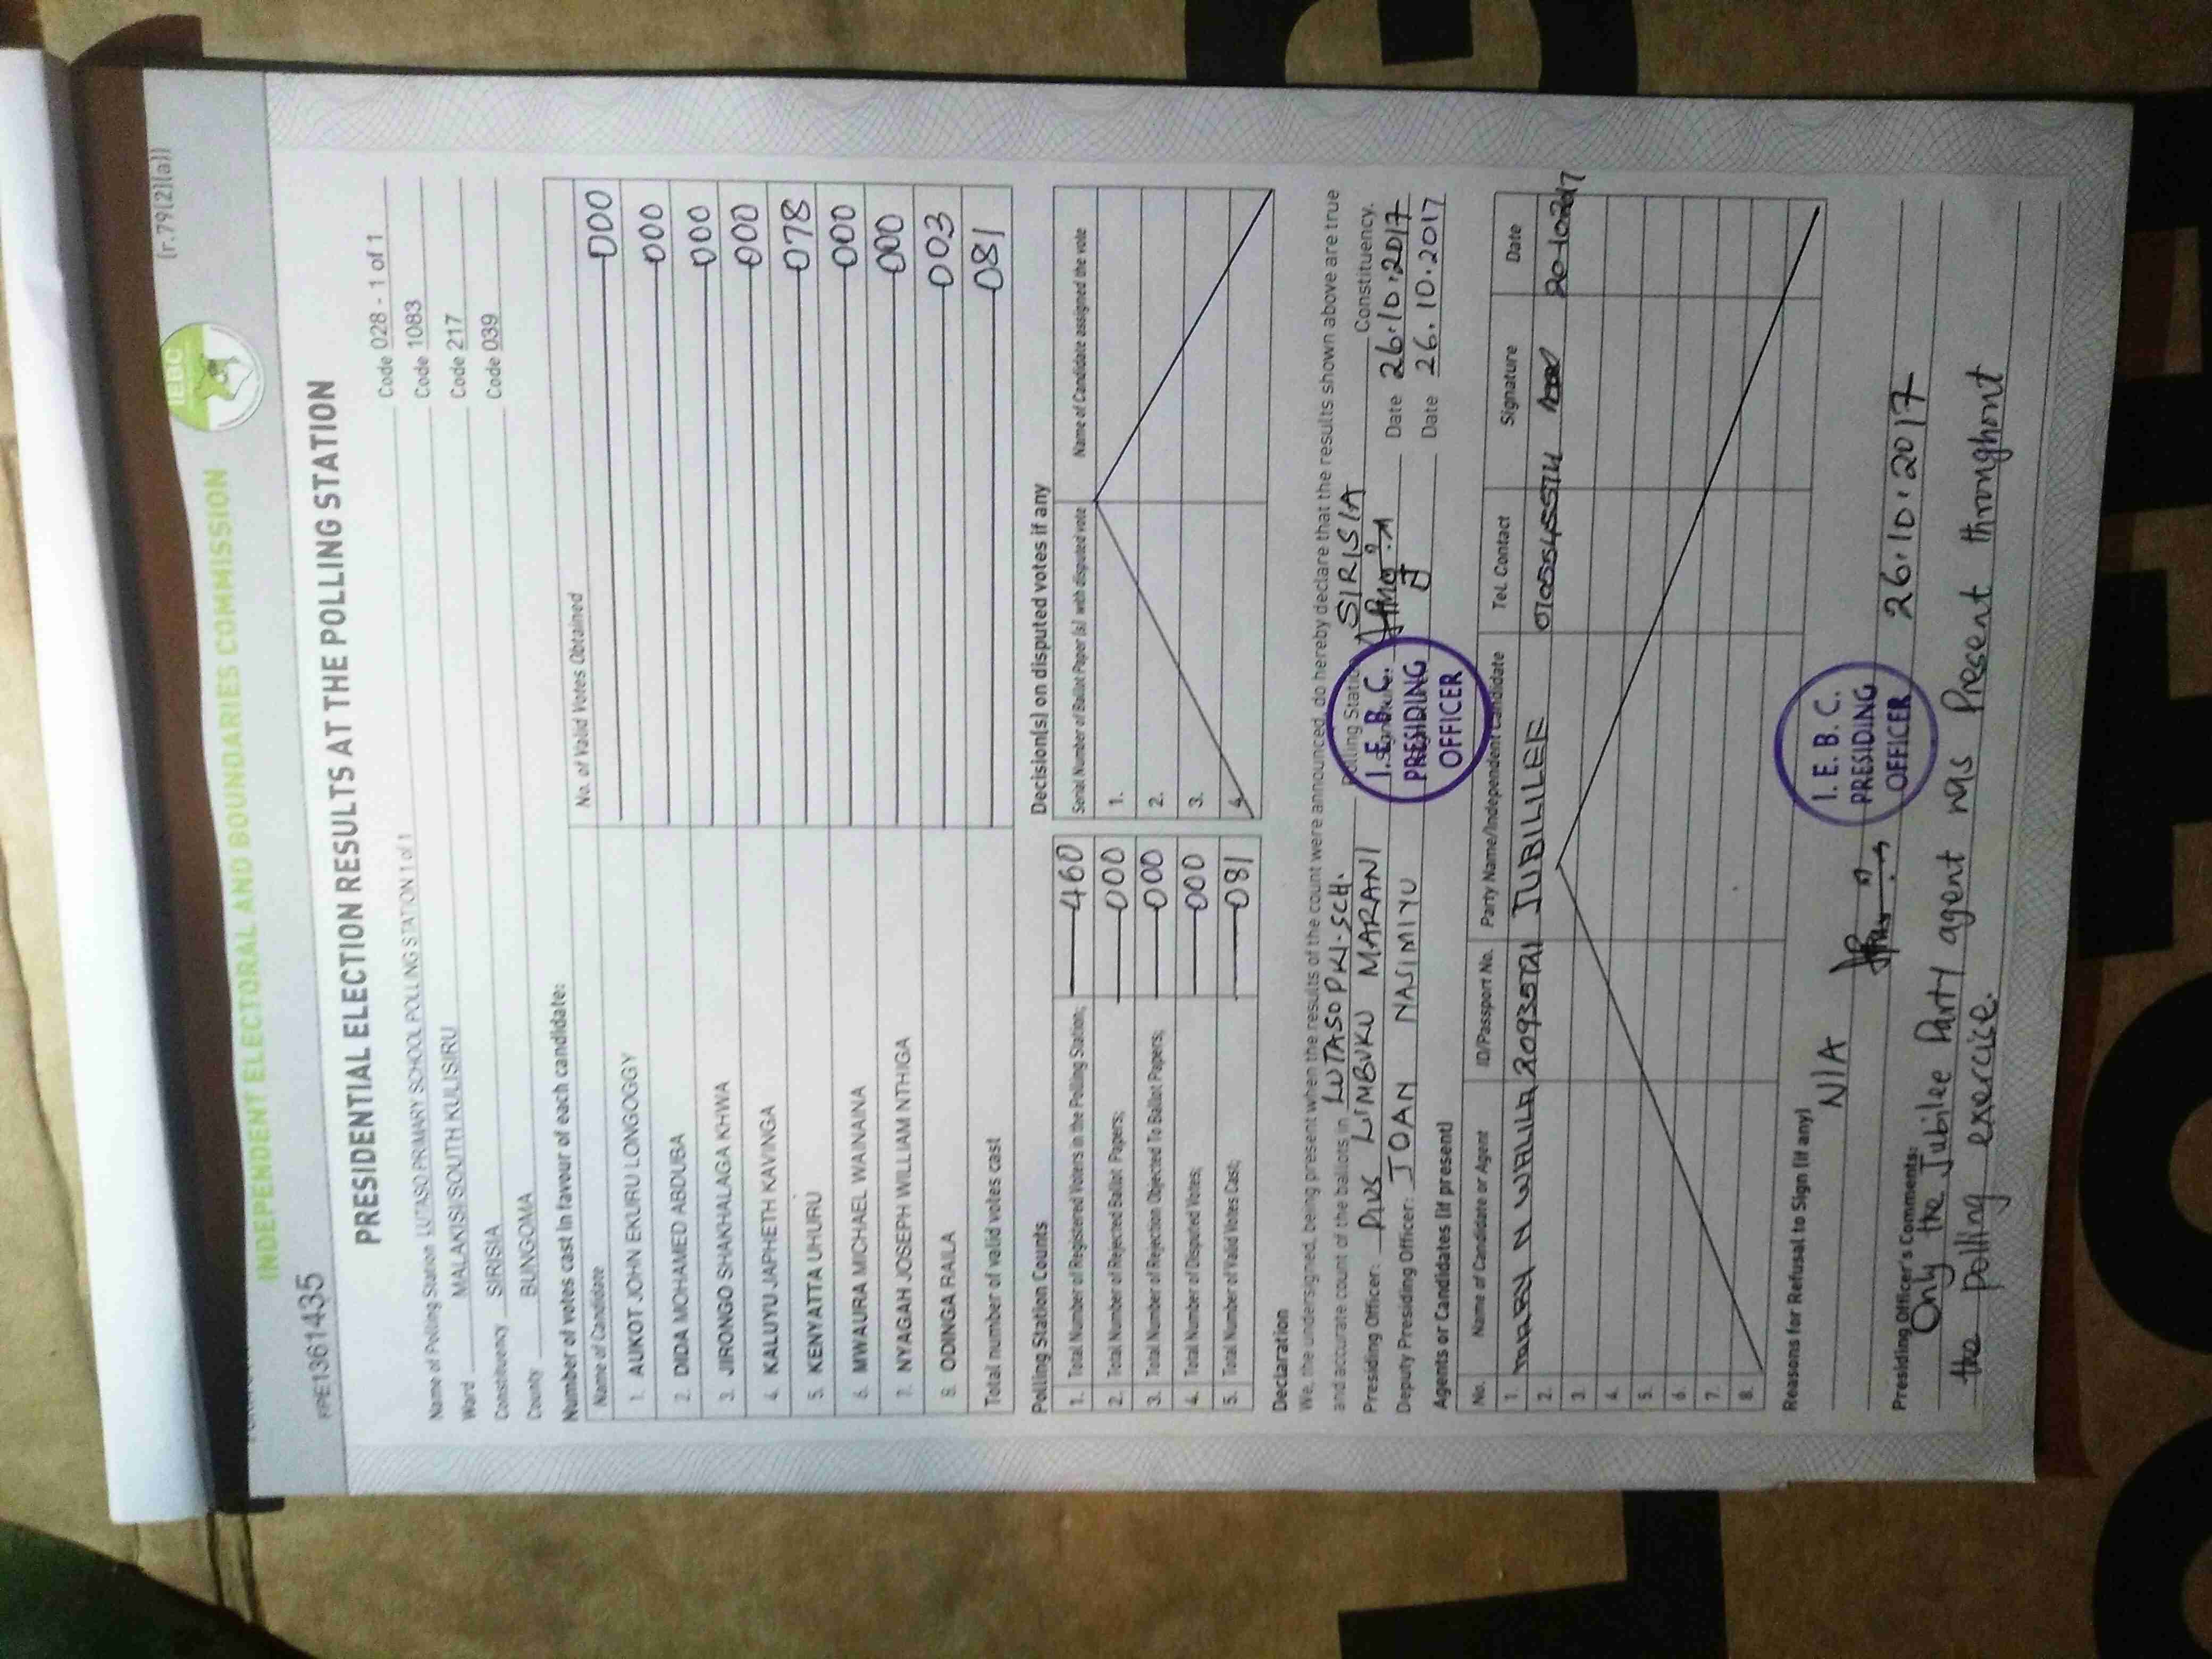 (r.79(2)(a))
IEBC
INDEPENDENT ELECTORAL AND BOUNDARIES COMMISSION
FPE1361435
PRESIDENTIAL ELECTION RESULTS AT THE POLLING STATION
Name of Polling Station LUTASO PRIMARY SCHOOL POLLING STATION 1 of 1 Code 028 - 1 of 1
Ward MALAKISI/SOUTH KULISIRU Code 1083
Constituency SIRISIA Code 217
County BUNGOMA Code 039
Number of votes cast in favour of each candidate:
Name of Candidate No. of Valid Votes Obtained
1. AUKOT JOHN EKURU LONGOGGY 000
2. DIDA MOHAMED ABDUBA 000
3. JIRONGO SHAKHALAGA KHWA 000
4. KALUYU JAPHETH KAVINGA 000
5. KENYATTA UHURU 078
6. MWAURA MICHAEL WAINAINA 000
7. NYAGAH JOSEPH WILLIAM NTHIGA 000
8. ODINGA RAILA 003
Total number of valid votes cast 081
Polling Station Counts
1. Total Number of Registered Voters in the Polling Station; 460
2. Total Number of Rejected Ballot Papers; 000
3. Total Number of Rejection Objected To Ballot Papers; 000
4. Total Number of Disputed Votes; 000
5. Total Number of Valid Votes Cast; 081
Decision(s) on disputed votes if any
Serial Number of Ballot Paper (s) with disputed vote Name of Candidate assigned the vote
1.
2.
3.
4.
Declaration
We, the undersigned, being present when the results of the count were announced, do hereby declare that the results shown above are true
and accurate count of the ballots in LUTASO PRI-SCH. Polling Station SIRISIA Constituency.
Presiding Officer: PIUS LIMBUKU MARANI Date 26.10.2017
Deputy Presiding Officer: JOAN NASIMIYU Date 26.10.2017
I. E. B. C.
PRESIDING
OFFICER
Agents or Candidates (if present)
No. Name of Candidate or Agent ID/Passport No. Party Name/Independent Candidate Tel. Contact Signature Date
1. MARY N WALILA JUBILILEE
2.
3.
4.
5.
6.
7.
8.
Reasons for Refusal to Sign (if any)
N/A
I. E. B. C.
PRESIDING
OFFICER
26.10.2017
Presiding Officer's Comments:
Only the Jubilee Party agent was Present throughout
the polling exercise.